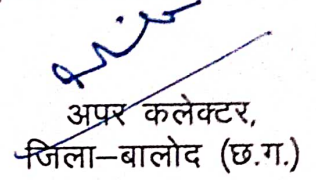 अपर कलेक्टर,
जिला–बालोद (छ.ग.)